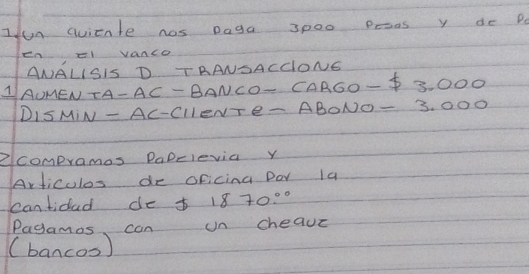 1. un quiente nos paga 3000 Pesos y de Po
en el vanco
ANÁLISIS D TRANSACCIONE
1 AUMENTA-AC-BANCO-CARGO-$ 3.000
DISMIN-AC-ClIENTe-ABONO-3.000
2 comPramos PaPelevia y
Articulos de oficina por la
cantidad de $ 1870.00
Pagamos con un cheque
(bancos)